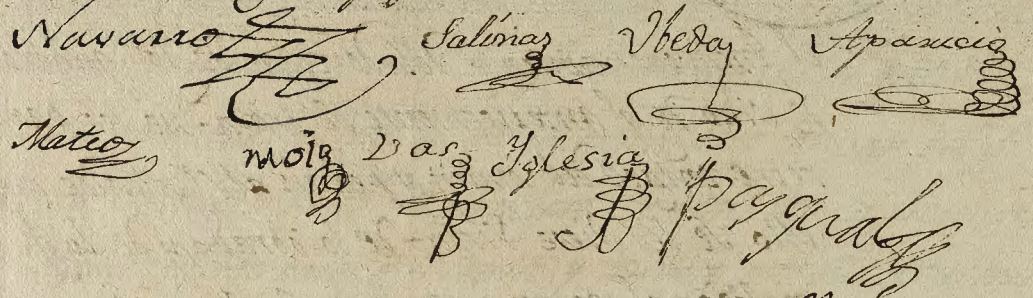 Navarro Salinas Ubeda Aparicio
Mateo Moia Bas Yglesia Pasqual